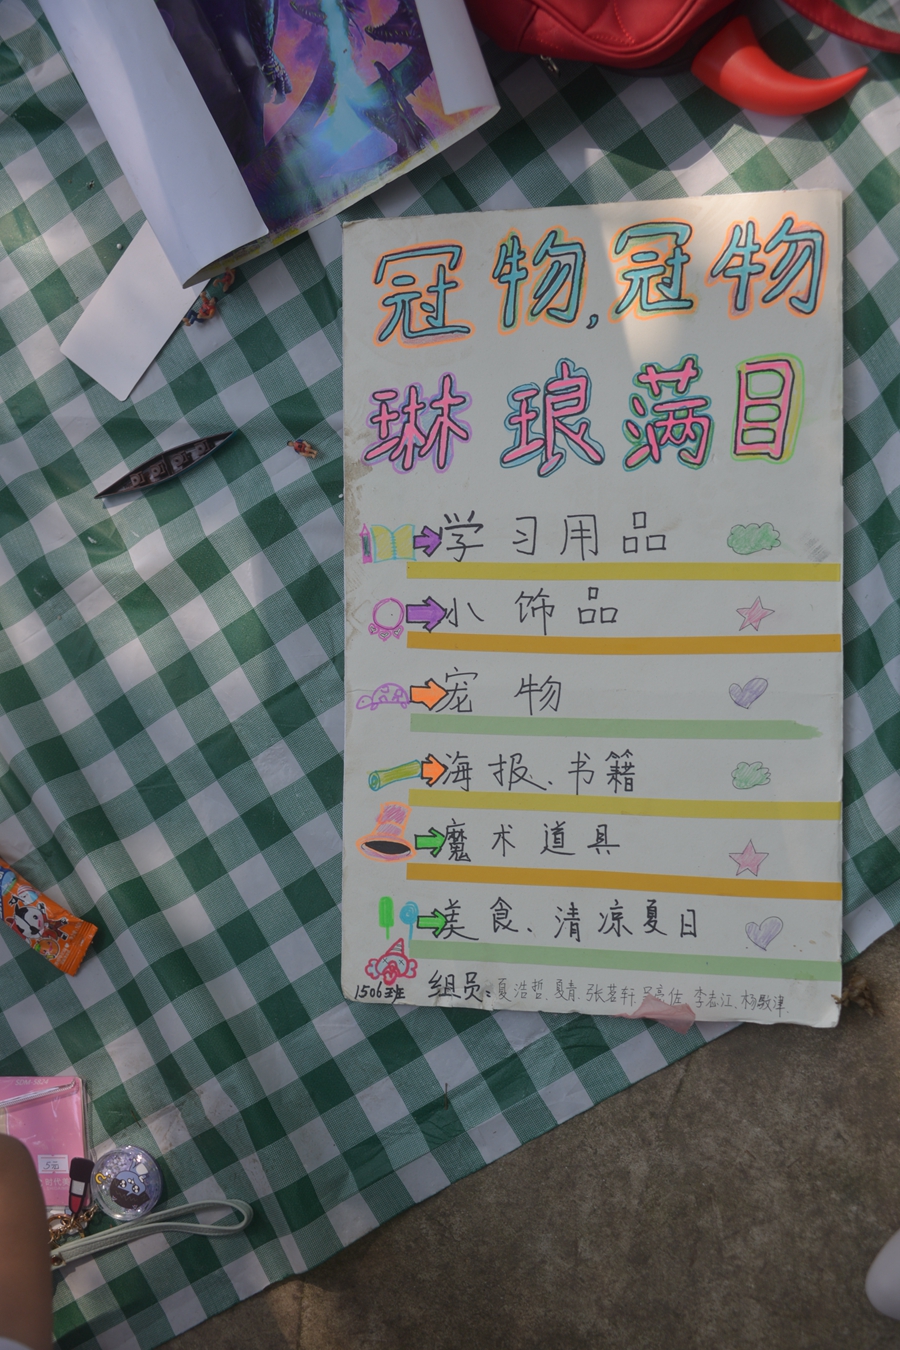 冠物,冠物
琳琅满目
学习用品
小饰品
宠物
海报、书籍
魔术道具
美食、清凉夏日
1506班 组员:夏浩哲、夏青、张茗轩、吕亭佐、李志江、杨敬津
5元